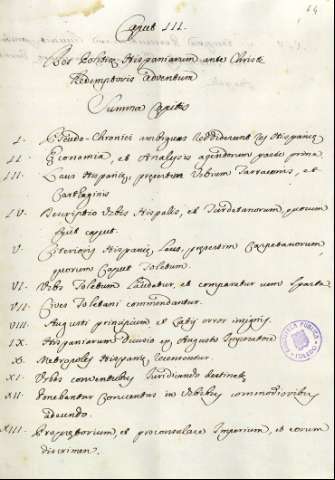 64
Caput III.
Res Politiæ Hispaniarum ante Christi
Redemptoris adventum
Summa Capitis
I. Pseudo-Chronici ambiguas reddiderunt res Hispaniæ
II. Economia, et Analysis agendorum parte prima
III. Laus Hispaniæ, præsertim Urbium Tarraconis, et
Carthaginis
IV. Descriptio Urbis Hispalis, et Turdetanorum, quorum
fuit caput.
V. Citerioris Hispaniæ, Laus, præsertim Carpetanorum
quorum Caput Toletum.
VI. Urbs Toletum Laudatur, et comparatur cum Sparta
VII. Cives Toletani commendantur.
VIII. Augusti principium et Calis error insignis
IX. Hispaniarum Divisio ex Augusto Imperatore
X. Metropoles Hispaniæ recensentur.
XI. Urbes conventibus Juridicundo destinatæ
XII. Ponebantur Conventus in Urbibus commodioribus
adeundo.
XIII. Proprætorium, et proconsulare Imperium, et eorum
discrimen.
BIBLIOTECA PUBLICA
TOLEDO